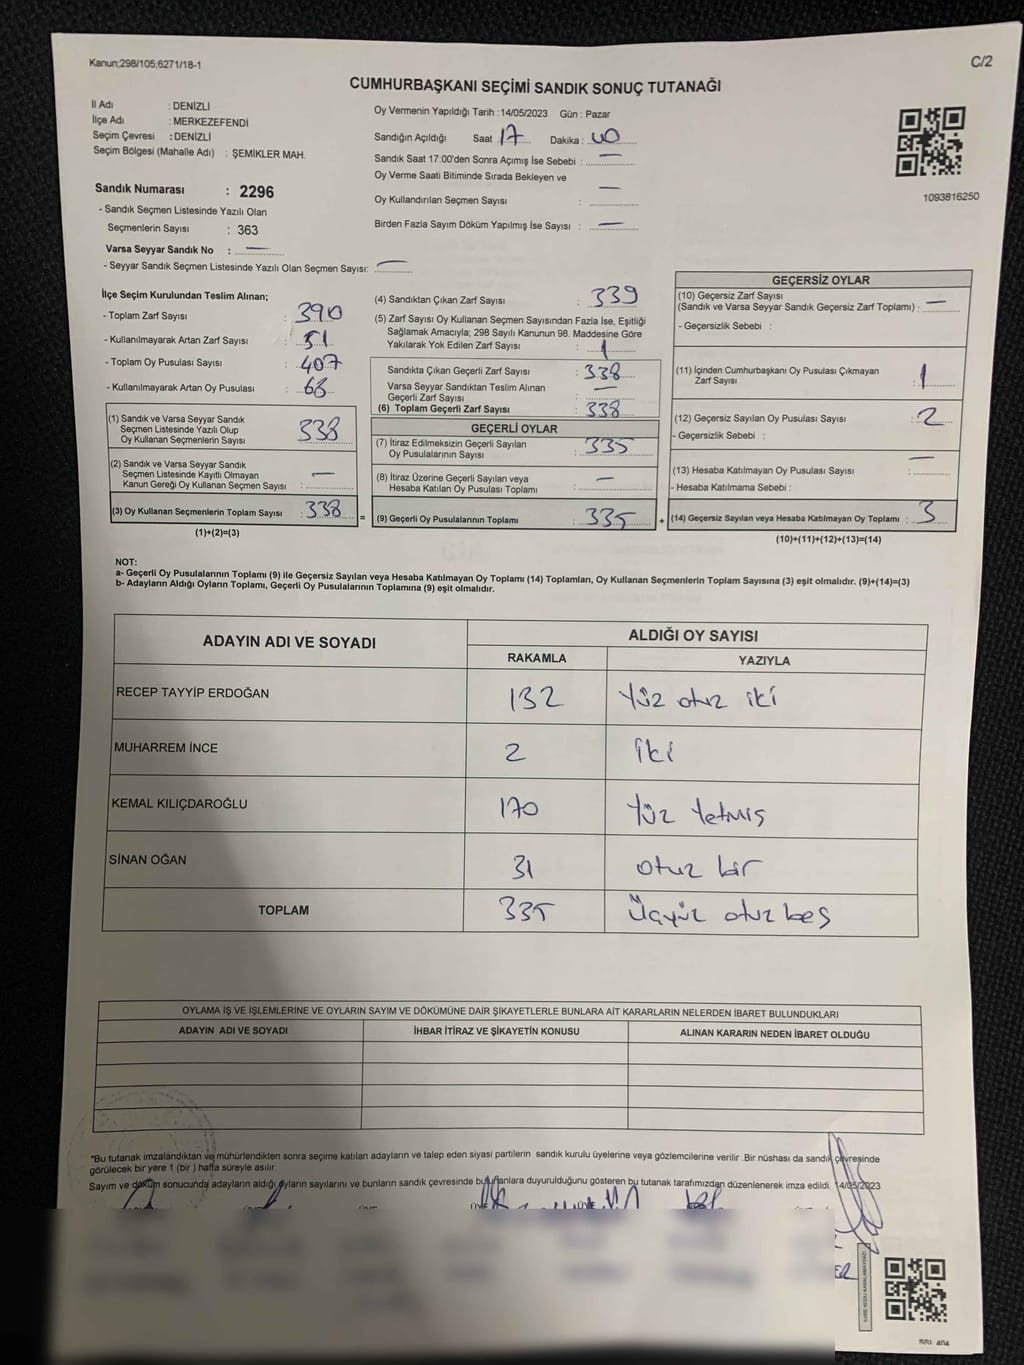 Kanun;298/105;6271/18-1
C/2
CUMHURBAŞKANI SEÇİMİ SANDIK SONUÇ TUTANAĞI
İl Adı : DENİZLİ
İlçe Adı : MERKEZEFENDİ
Seçim Çevresi : DENİZLİ
Seçim Bölgesi (Mahalle Adı) : ŞEMİKLER MAH.
Oy Vermenin Yapıldığı Tarih : 14/05/2023 Gün : Pazar
Sandığın Açıldığı Saat 17 Dakika : 00
Sandık Saat 17:00'den Sonra Açımış İse Sebebi : —
Oy Verme Saati Bitiminde Sırada Bekleyen ve
Oy Kullandırılan Seçmen Sayısı : —
Birden Fazla Sayım Döküm Yapılmış İse Sayısı : —
1093816250
Sandık Numarası : 2296
- Sandık Seçmen Listesinde Yazılı Olan
Seçmenlerin Sayısı : 363
Varsa Seyyar Sandık No : —
- Seyyar Sandık Seçmen Listesinde Yazılı Olan Seçmen Sayısı: —
İlçe Seçim Kurulundan Teslim Alınan;
- Toplam Zarf Sayısı : 390
- Kullanılmayarak Artan Zarf Sayısı : 51
- Toplam Oy Pusulası Sayısı : 407
- Kullanılmayarak Artan Oy Pusulası : 68
(1) Sandık ve Varsa Seyyar Sandık
Seçmen Listesinde Yazılı Olup
Oy Kullanan Seçmenlerin Sayısı : 338
(2) Sandık ve Varsa Seyyar Sandık
Seçmen Listesinde Kayıtlı Olmayan
Kanun Gereği Oy Kullanan Seçmen Sayısı : —
(3) Oy Kullanan Seçmenlerin Toplam Sayısı : 338 =
(1)+(2)=(3)
(4) Sandıktan Çıkan Zarf Sayısı : 339
(5) Zarf Sayısı Oy Kullanan Seçmen Sayısından Fazla İse, Eşitliği
Sağlamak Amacıyla; 298 Sayılı Kanunun 98. Maddesine Göre
Yakılarak Yok Edilen Zarf Sayısı : 1
Sandıkta Çıkan Geçerli Zarf Sayısı : 338
Varsa Seyyar Sandıktan Teslim Alınan
Geçerli Zarf Sayısı : —
(6) Toplam Geçerli Zarf Sayısı : 338
GEÇERLİ OYLAR
(7) İtiraz Edilmeksizin Geçerli Sayılan
Oy Pusulalarının Sayısı : 335
(8) İtiraz Üzerine Geçerli Sayılan veya
Hesaba Katılan Oy Pusulası Toplamı : —
(9) Geçerli Oy Pusulalarının Toplamı : 335 +
GEÇERSİZ OYLAR
(10) Geçersiz Zarf Sayısı
(Sandık ve Varsa Seyyar Sandık Geçersiz Zarf Toplamı) : —
- Geçersizlik Sebebi :
(11) İçinden Cumhurbaşkanı Oy Pusulası Çıkmayan
Zarf Sayısı : 1
(12) Geçersiz Sayılan Oy Pusulası Sayısı : 2
- Geçersizlik Sebebi :
(13) Hesaba Katılmayan Oy Pusulası Sayısı : —
- Hesaba Katılmama Sebebi :
(14) Geçersiz Sayılan veya Hesaba Katılmayan Oy Toplamı : 3
(10)+(11)+(12)+(13)=(14)
NOT:
a- Geçerli Oy Pusulalarının Toplamı (9) ile Geçersiz Sayılan veya Hesaba Katılmayan Oy Toplamı (14) Toplamları, Oy Kullanan Seçmenlerin Toplam Sayısına (3) eşit olmalıdır. (9)+(14)=(3)
b- Adayların Aldığı Oyların Toplamı, Geçerli Oy Pusulalarının Toplamına (9) eşit olmalıdır.
ADAYIN ADI VE SOYADI
ALDIĞI OY SAYISI
RAKAMLA YAZIYLA
RECEP TAYYİP ERDOĞAN 132 Yüz otuz iki
MUHARREM İNCE 2 iki
KEMAL KILIÇDAROĞLU 170 Yüz Yetmiş
SİNAN OĞAN 31 otuz bir
TOPLAM 335 Üçyüz otuz beş
OYLAMA İŞ VE İŞLEMLERİNE VE OYLARIN SAYIM VE DÖKÜMÜNE DAİR ŞİKAYETLERLE BUNLARA AİT KARARLARIN NELERDEN İBARET BULUNDUKLARI
ADAYIN ADI VE SOYADI İHBAR İTİRAZ VE ŞİKAYETİN KONUSU ALINAN KARARIN NEDEN İBARET OLDUĞU
*Bu tutanak imzalandıktan ve mühürlendikten sonra seçime katılan adayların ve talep eden siyasi partilerin sandık kurulu üyelerine veya gözlemcilerine verilir .Bir nüshası da sandık çevresinde
görülecek bir yere 1 (bir ) hafta süreyle asılır.
Sayım ve döküm sonucunda adayların aldığı oyların sayılarını ve bunların sandık çevresinde bulunanlara duyurulduğunu gösteren bu tutanak tarafımızdan düzenlenerek imza edildi. 14/05/2023